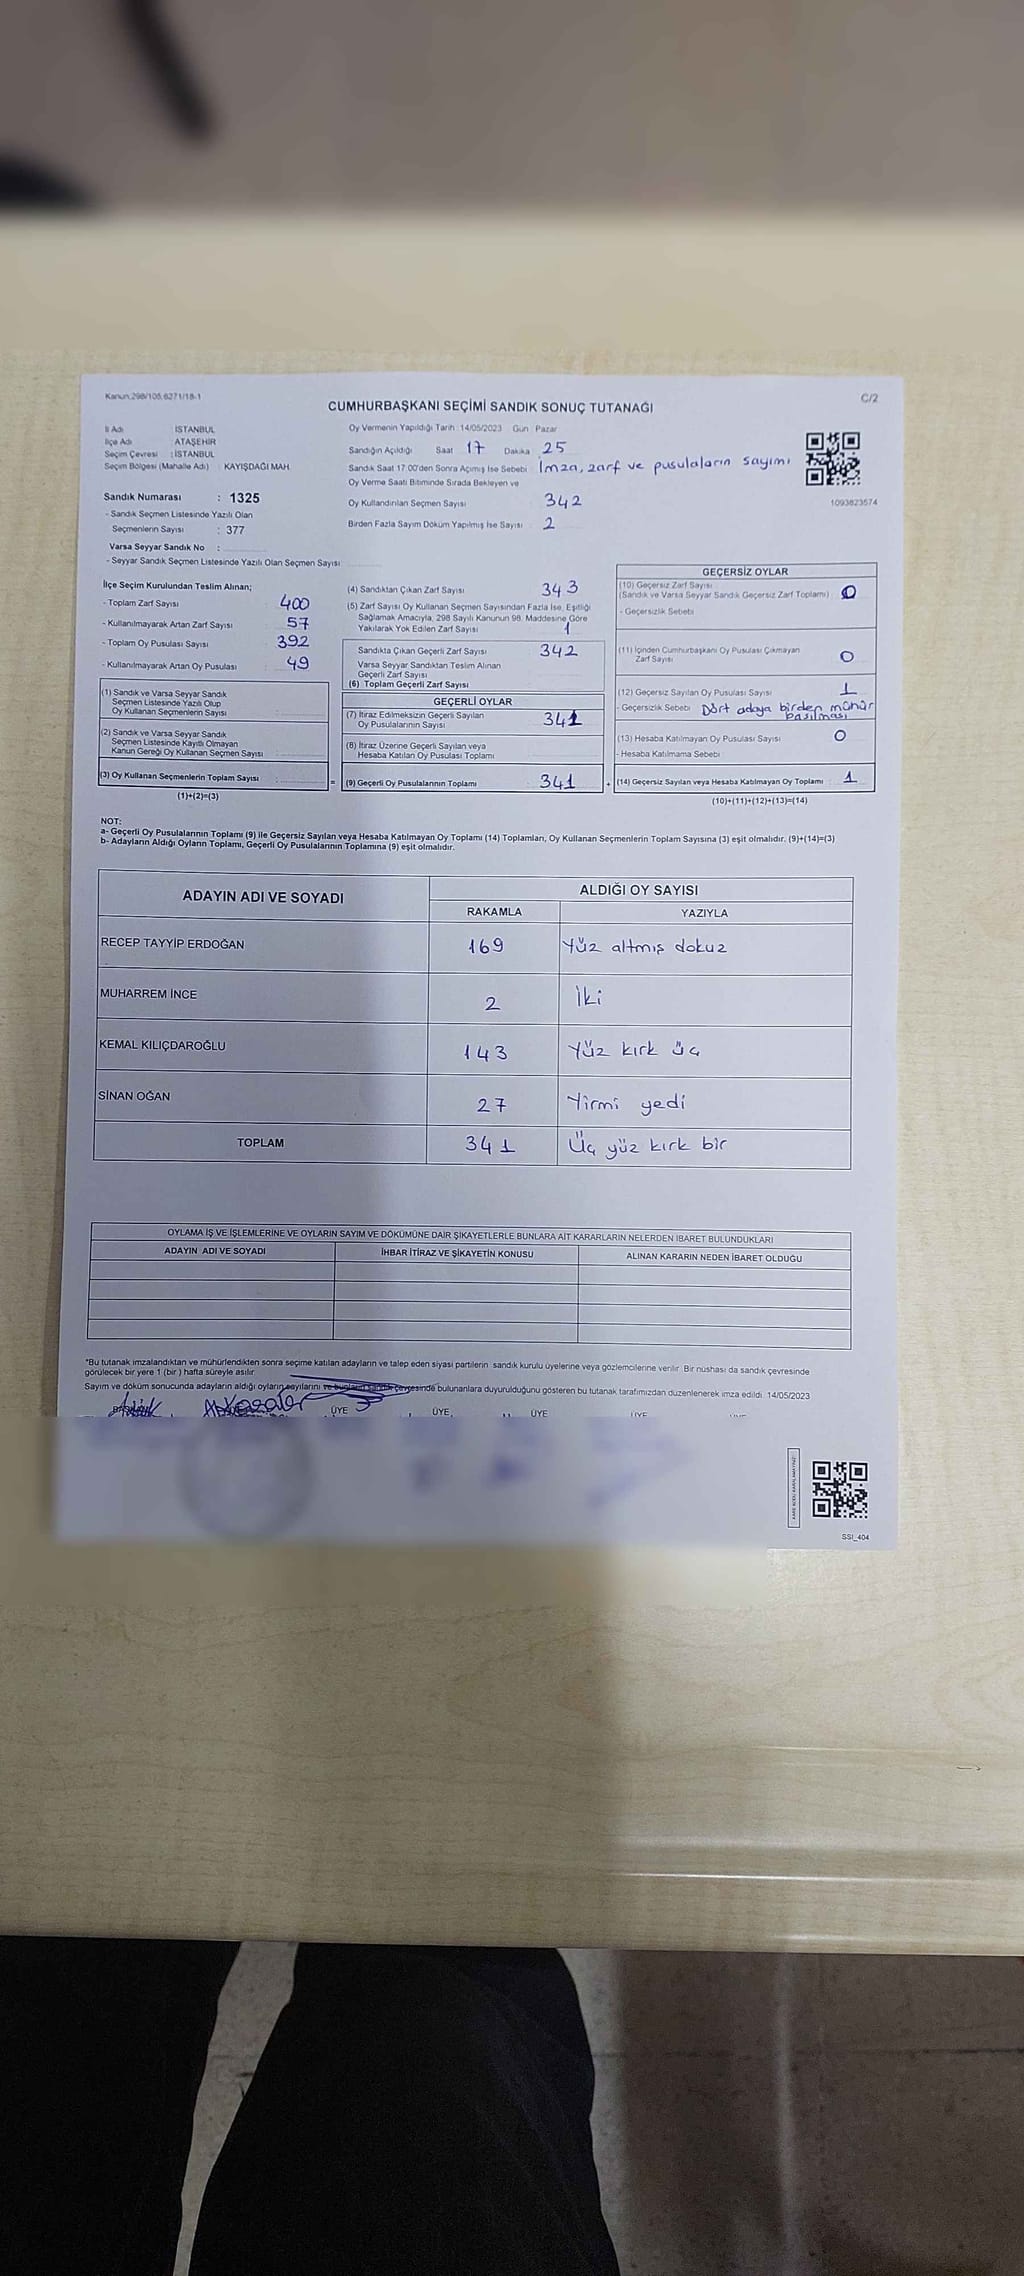 Kanun:298/105,6271/18-1
C/2
CUMHURBAŞKANI SEÇİMİ SANDIK SONUÇ TUTANAĞI
İl Adı : İSTANBUL
İlçe Adı : ATAŞEHİR
Seçim Çevresi : İSTANBUL
Seçim Bölgesi (Mahalle Adı) : KAYIŞDAĞI MAH.
Sandık Numarası : 1325
- Sandık Seçmen Listesinde Yazılı Olan
Seçmenlerin Sayısı : 377
Varsa Seyyar Sandık No :
- Seyyar Sandık Seçmen Listesinde Yazılı Olan Seçmen Sayısı
Oy Vermenin Yapıldığı Tarih :14/05/2023 Gün : Pazar
Sandığın Açıldığı Saat 17 Dakika 25
Sandık Saat 17.00'den Sonra Açımış İse Sebebi İmza, zarf ve pusulaların sayımı
Oy Verme Saati Bitiminde Sırada Bekleyen ve
Oy Kullandırılan Seçmen Sayısı 342
Birden Fazla Sayım Döküm Yapılmış İse Sayısı 2
1093823574
İlçe Seçim Kurulundan Teslim Alınan;
- Toplam Zarf Sayısı 400
- Kullanılmayarak Artan Zarf Sayısı 57
- Toplam Oy Pusulası Sayısı 392
- Kullanılmayarak Artan Oy Pusulası 49
(1) Sandık ve Varsa Seyyar Sandık
Seçmen Listesinde Yazılı Olup
Oy Kullanan Seçmenlerin Sayısı
(2) Sandık ve Varsa Seyyar Sandık
Seçmen Listesinde Kayıtlı Olmayan
Kanun Gereği Oy Kullanan Seçmen Sayısı
(3) Oy Kullanan Seçmenlerin Toplam Sayısı =
(1)+(2)=(3)
(4) Sandıktan Çıkan Zarf Sayısı 343
(5) Zarf Sayısı Oy Kullanan Seçmen Sayısından Fazla İse, Eşitliği
Sağlamak Amacıyla, 298 Sayılı Kanunun 98. Maddesine Göre
Yakılarak Yok Edilen Zarf Sayısı 1
Sandıkta Çıkan Geçerli Zarf Sayısı 342
Varsa Seyyar Sandıktan Teslim Alınan
Geçerli Zarf Sayısı
(6) Toplam Geçerli Zarf Sayısı
GEÇERLİ OYLAR
(7) İtiraz Edilmeksizin Geçerli Sayılan
Oy Pusulalarının Sayısı 341
(8) İtiraz Üzerine Geçerli Sayılan veya
Hesaba Katılan Oy Pusulası Toplamı
(9) Geçerli Oy Pusulalarının Toplamı 341 +
GEÇERSİZ OYLAR
(10) Geçersiz Zarf Sayısı
(Sandık ve Varsa Seyyar Sandık Geçersiz Zarf Toplamı) 0
- Geçersizlik Sebebi
(11) İçinden Cumhurbaşkanı Oy Pusulası Çıkmayan
Zarf Sayısı 0
(12) Geçersiz Sayılan Oy Pusulası Sayısı 1
- Geçersizlik Sebebi Dört adaya birden mühür
basılması
(13) Hesaba Katılmayan Oy Pusulası Sayısı 0
- Hesaba Katılmama Sebebi
(14) Geçersiz Sayılan veya Hesaba Katılmayan Oy Toplamı 1
(10)+(11)+(12)+(13)=(14)
NOT:
a- Geçerli Oy Pusulalarının Toplamı (9) ile Geçersiz Sayılan veya Hesaba Katılmayan Oy Toplamı (14) Toplamları, Oy Kullanan Seçmenlerin Toplam Sayısına (3) eşit olmalıdır. (9)+(14)=(3)
b- Adayların Aldığı Oyların Toplamı, Geçerli Oy Pusulalarının Toplamına (9) eşit olmalıdır.
ADAYIN ADI VE SOYADI
ALDIĞI OY SAYISI
RAKAMLA YAZIYLA
RECEP TAYYİP ERDOĞAN 169 Yüz altmış dokuz
MUHARREM İNCE 2 İki
KEMAL KILIÇDAROĞLU 143 Yüz kırk üç
SİNAN OĞAN 27 Yirmi yedi
TOPLAM 341 Üç yüz kırk bir
OYLAMA İŞ VE İŞLEMLERİNE VE OYLARIN SAYIM VE DÖKÜMÜNE DAİR ŞİKAYETLERLE BUNLARA AİT KARARLARIN NELERDEN İBARET BULUNDUKLARI
ADAYIN ADI VE SOYADI İHBAR İTİRAZ VE ŞİKAYETİN KONUSU ALINAN KARARIN NEDEN İBARET OLDUĞU
*Bu tutanak imzalandıktan ve mühürlendikten sonra seçime katılan adayların ve talep eden siyasi partilerin sandık kurulu üyelerine veya gözlemcilerine verilir. Bir nüshası da sandık çevresinde
görülecek bir yere 1 (bir) hafta süreyle asılır.
Sayım ve döküm sonucunda adayların aldığı oyların sayılarını ve çevresinde bulunanlara duyurulduğunu gösteren bu tutanak tarafımızdan düzenlenerek imza edildi. 14/05/2023
ÜYE ÜYE ÜYE
SSI_404